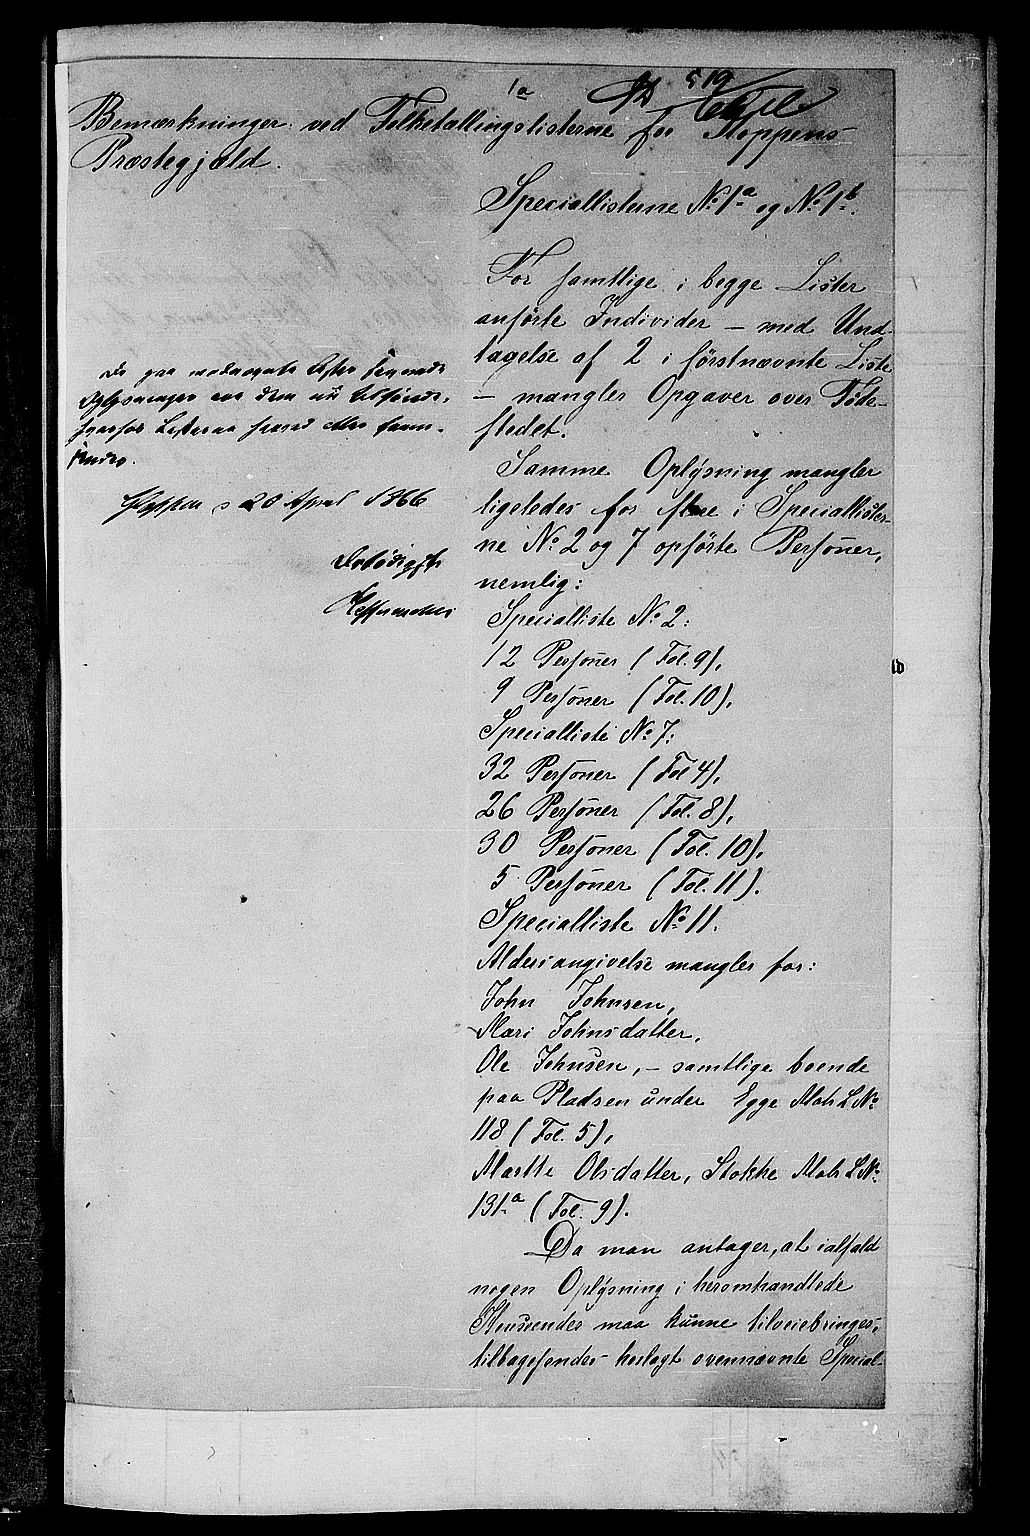 1a
519
Bemærkninger ved Folketællingslisterne for Kleppens
Præstegjæld.
Speciallisterne No 1a og No 1b.
For samtlige i begge Lister
anførte Individer – med Und-
tagelse af 2 i førstnævnte Liste
– mangler Opgaver over Føde-
stedet.
Samme Oplysning mangler
ligeledes for flere i Speciallister-
ne No 2 og 7 opførte Personer,
nemlig:
Specialliste No 2:
12 Personer (Fol. 9),
9 Personer (Fol. 10),
Specialliste No 7:
32 Personer (Fol 4),
26 Personer (Fol. 8),
30 Personer (Fol. 10),
5 Personer (Fol. 11).
Specialliste No 11.
Aldersangivelse mangler for:
John Johnsen,
Mari Johnsdatter,
Ole Johnsen, – samtlige boende
paa Pladsen under Egge Matr L No
118 (Fol. 5),
Marthe Olsdatter, Stokke Matr L No
131a (Fol. 9).
Da man antager, at ialfald
nogen Oplysning i heromhandlede
Henseender maa kunne tilveiebringes,
tilbagesendes herlagt ovennævnte Special-
De paa
Oplysninger ere dem nu tilføiede,
hvorfor Listerne
sendes.
20 April 1866
Ærbødigst